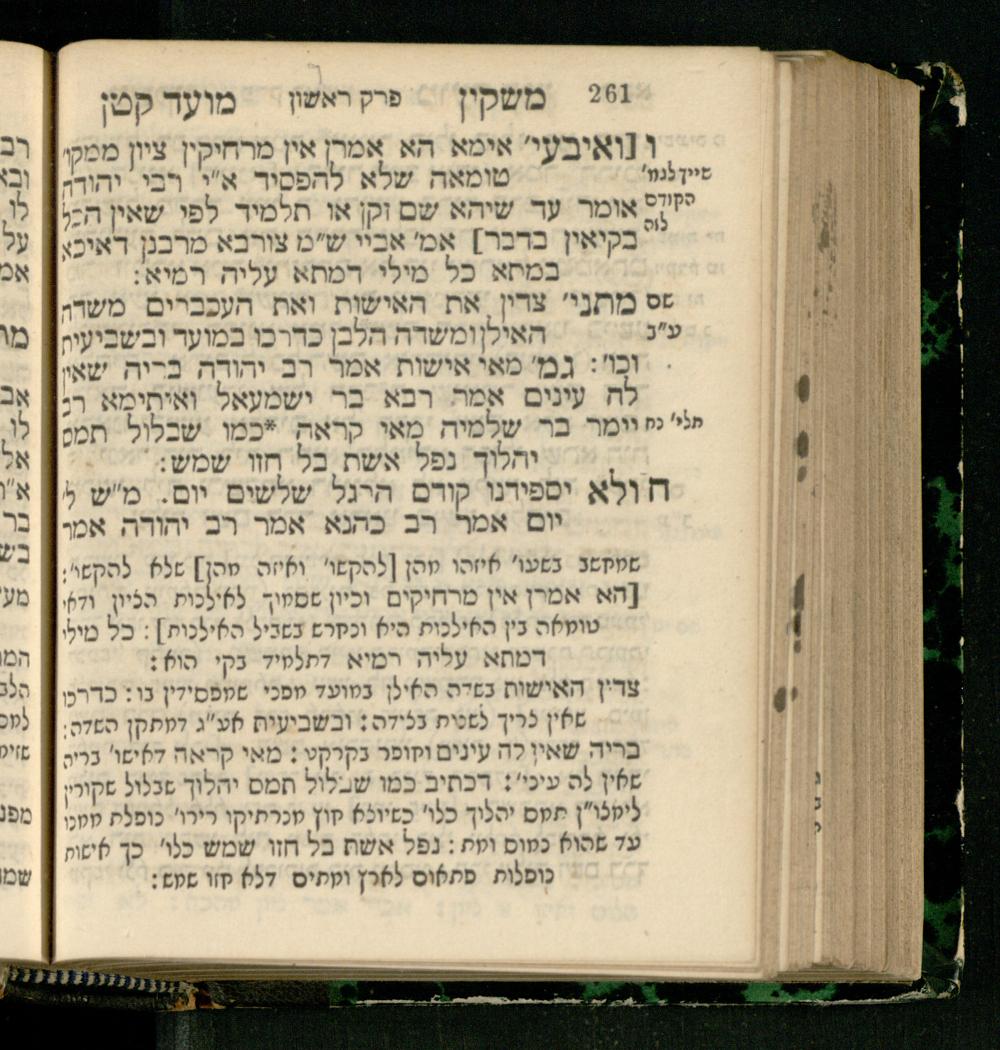 261 משקין פרק ראשון מועד קטן
ו [ואיבעי׳ אימא הא אמרן אין מרחיקין ציון ממקו׳
שייך לגמ׳
טומאה שלא להפסיד א״י רבי יהודה
הקודם
אומר עד שיהא שם זקן או תלמיד לפי שאין הכל
לזה
בקיאין בדבר] אמ׳ אביי ש״מ צורבא מרבנן דאיכא
במתא כל מילי דמתא עליה רמיא:
שם
מתני׳ צדין את האישות ואת העכברים משדה
ע״ב
האילן ומשדה הלבן כדרכו במועד ובשביעית
וכו׳: גמ׳ מאי אישות אמר רב יהודה בריה שאין
לה עינים אמר רבא בר ישמעאל ואיתימא רב
תלי׳ נח
יימר בר שלמיה מאי קראה *כמו שבלול תמס
יהלוך נפל אשת בל חזו שמש:
ח ולא יספידנו קודם הרגל שלשים יום. מ״ש ל׳
יום אמר רב כהנא אמר רב יהודה אמר
שמקשב בשעו׳ איזהו מהן [להקשו׳ ואיזה מהן] שלא להקשו׳:
[הא אמרן אין מרחיקים וכיון שסמוך לאילנות הציון ודאי
טומאה בין האילנות היא ונחרש בשביל האילנות]: כל מילי
דמתא עליה רמיא דתלמיד בקי הוא:
צדין האישות בשדה האילן במועד מפני שמפסידין בו: כדרכו
שאין צריך לשנות בצידה: ובשביעית אע״ג דמתקן השדה:
בריה שאין לה עינים וחופר בקרקע: מאי קראה דאישו׳ בריה
שאין לה עיני׳: דכתיב כמו שבלול תמס יהלוך שבלול שקורין
לימצו״ן תמס יהלוך כלו׳ כשיוצא חוץ מנרתיקו רירו׳ נופלת ממנו
עד שהוא נמוס ומת: נפל אשת בל חזו שמש כלו׳ כך אישות
נופלות פתאום לארץ ומתים דלא חזו שמש: